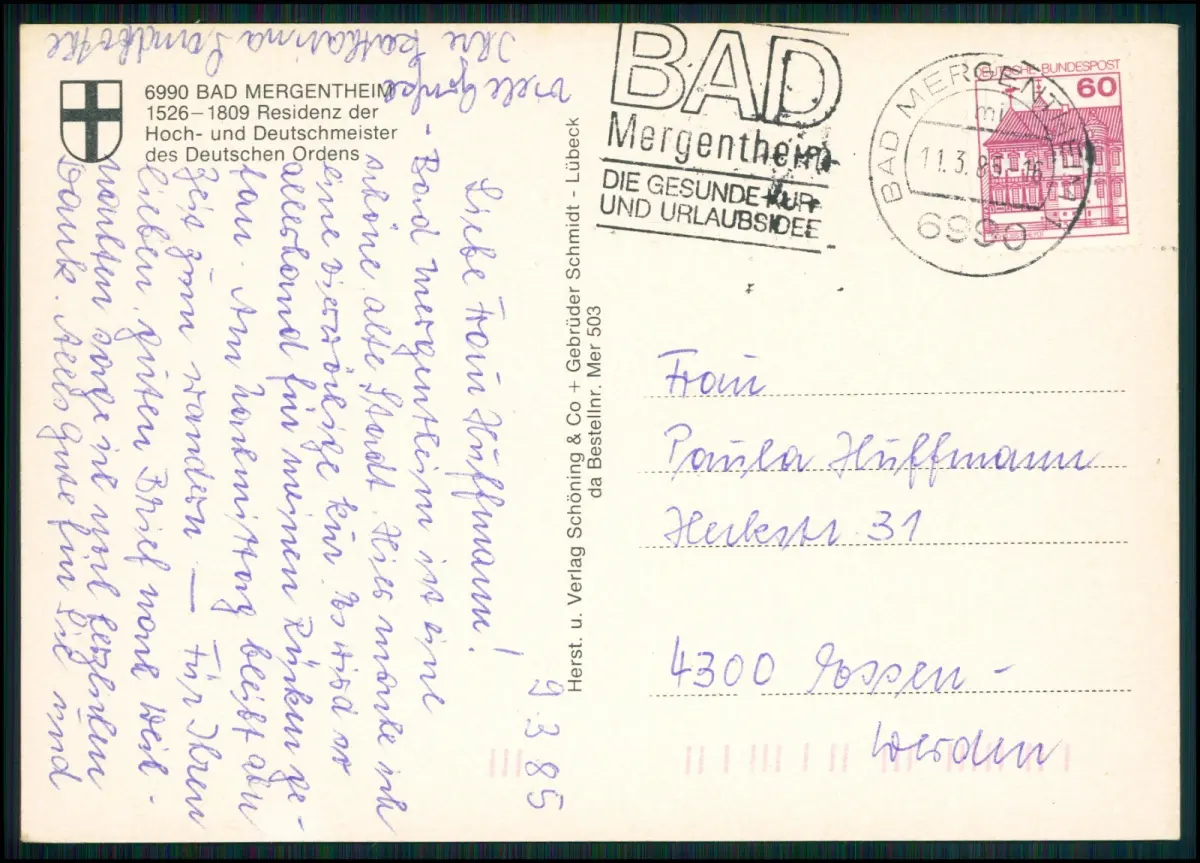 6990 BAD MERGENTHEIM
1526–1809 Residenz der
Hoch- und Deutschmeister
des Deutschen Ordens
9.3.85
Liebe Frau Hüffmann!
Bad Mergentheim ist eine
schöne alte Stadt. Hier mache ich
eine vierwöchige Kur. Es wird er
allerhand für meinen Rücken ge-
tan. Am Nachmittag bleibt aber
Zeit zum wandern. — Für Ihren
lieben, guten Brief nach Weih-
nachten sage ich noch herzlichen
Dank. Alles Gute für Sie und
viele Grüße -
Ihre Katharina
Herst. u. Verlag Schöning & Co + Gebrüder Schmidt - Lübeck
da Bestellnr. Mer 503
BAD
Mergentheim
DIE GESUNDE KUR-
UND URLAUBSIDEE
BAD MERGENTHEIM 1
mi
11.3.85.-16
6990
DEUTSCHE BUNDESPOST
60
Frau
Paula Hüffmann
Heckstr. 31
4300 Essen -
Werden